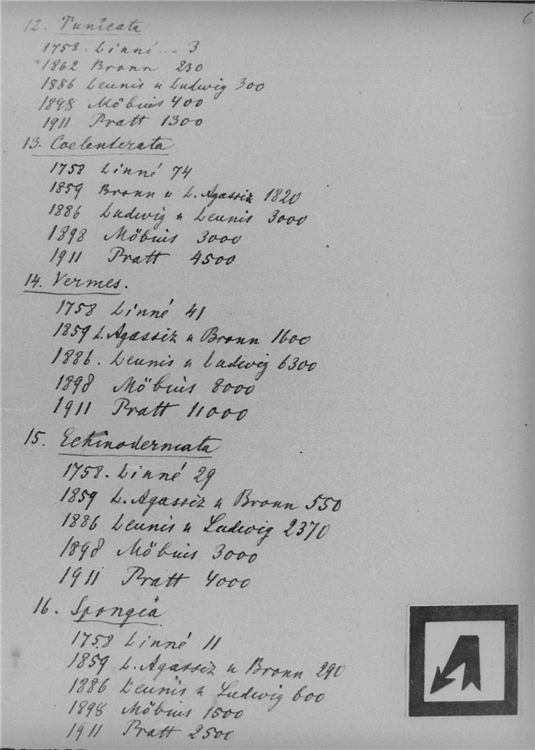 6
12. Tunicata
1758. Linné... 3
1862 Bronn 230
1886 Leunis u Ludwig 300
1898 Möbius 400
1911 Pratt 1300
13. Coelenterata
1758 Linné 74
1859 Bronn u L. Agassiz 1820
1886 Ludwig u Leunis 3000
1898 Möbius 3000
1911 Pratt 4500
14. Vermes.
1758 Linné 41
1859 L. Agassiz u Bronn 1600
1886. Leunis u Ludwig 6300
1898 Möbius 8000
1911 Pratt 11000
15. Echinodermata
1758. Linné 29
1859 L. Agassiz u Bronn 550
1886 Leunis u Ludwig 2370
1898 Möbius 3000
1911 Pratt 4000
16. Spongiä
1758 Linné 11
1859 L. Agassiz u Bronn 290
1886 Leunis u Ludwig 600
1898 Möbius 1500
1911 Pratt 2500